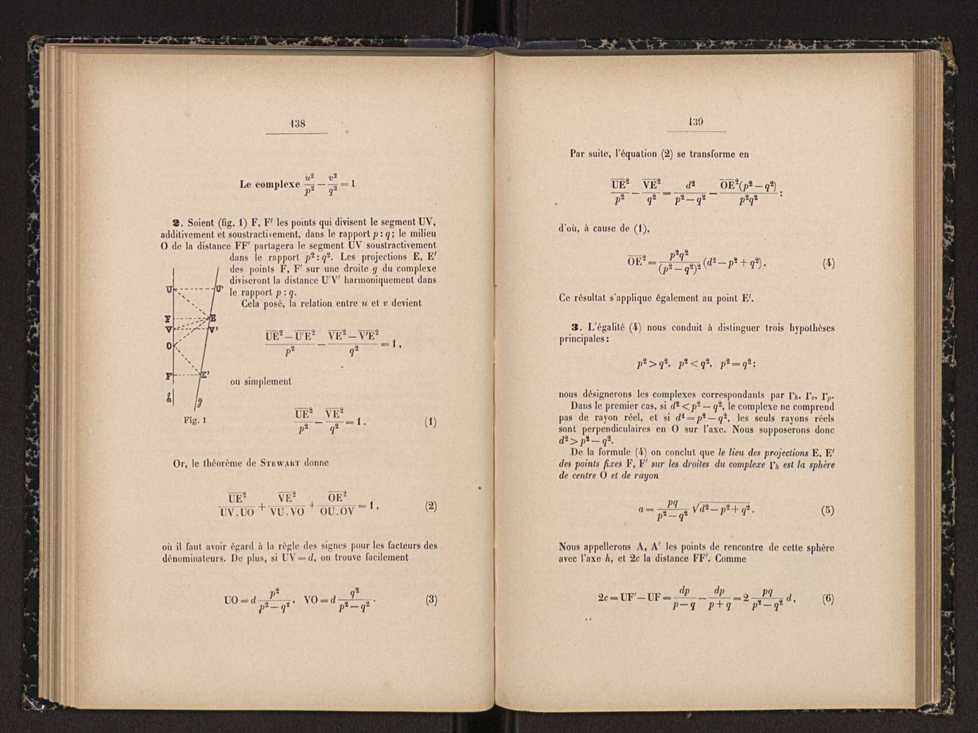 138
Le complexe u²/p² − v²/q² = 1
2. Soient (fig. 1) F, F′ les points qui divisent le segment UV,
additivement et soustractivement, dans le rapport p : q ; le milieu
O de la distance FF′ partagera le segment UV soustractivement
dans le rapport p² : q². Les projections E, E′
des points F, F′ sur une droite g du complexe
diviseront la distance U′V′ harmoniquement dans
le rapport p : q.
Cela posé, la relation entre u et v devient
(U̅E̅² − U̅′E̅²)/p² − (V̅E̅² − V̅′E̅²)/q² = 1 ,
ou simplement
U U′
F E
V V′
O
F′ E′
h g
Fig. 1
U̅E̅²/p² − V̅E̅²/q² = 1 . (1)
Or, le théorème de Stewart donne
U̅E̅²/(UV.UO) + V̅E̅²/(VU.VO) + O̅E̅²/(OU.OV) = 1 , (2)
où il faut avoir égard à la règle des signes pour les facteurs des
dénominateurs. De plus, si UV = d, on trouve facilement
UO = d p²/(p² − q²) , VO = d q²/(p² − q²) . (3)
139
Par suite, l'équation (2) se transforme en
U̅E̅²/p² − V̅E̅²/q² = d²/(p² − q²) − O̅E̅²(p² − q²)/(p²q²) ;
d'où, à cause de (1),
O̅E̅² = p²q²/(p² − q²)² (d² − p² + q²) . (4)
Ce résultat s'applique également au point E′.
3. L'égalité (4) nous conduit à distinguer trois hypothèses
principales :
p² > q², p² < q², p² = q² ;
nous désignerons les complexes correspondants par Γh, Γe, Γp.
Dans le premier cas, si d² < p² − q², le complexe ne comprend
pas de rayon réel, et si d² = p² − q², les seuls rayons réels
sont perpendiculaires en O sur l'axe. Nous supposerons donc
d² > p² − q².
De la formule (4) on conclut que le lieu des projections E, E′
des points fixes F, F′ sur les droites du complexe Γh est la sphère
de centre O et de rayon
a = pq/(p² − q²) √(d² − p² + q²) . (5)
Nous appellerons A, A′ les points de rencontre de cette sphère
avec l'axe h, et 2c la distance FF′. Comme
2c = UF′ − UF = dp/(p − q) − dp/(p + q) = 2 pq/(p² − q²) d , (6)